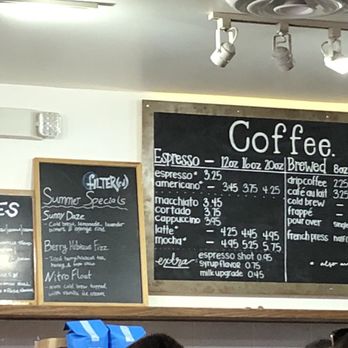 ES
FILTER
Summer Specials
Sunny Daze
Cold brew, lemonade, lavender
Berry Hibiscus Fizz
Iced hemp/hibiscus tea,
honey &
Nitro Float
nitro cold brew topped
with vanilla ice cream
Coffee.
Espresso - 12oz 16oz 20oz
espresso* 3.25
americano* - 3.45 3.75 4.25
macchiato 3.45
cortado 3.75
cappuccino 3.95
latte* - 4.25 4.45 4.95
mocha* - 4.95 5.25 5.75
extra espresso shot 0.95
syrup flavor 0.75
milk upgrade 0.45
Brewed 8oz
drip coffee 2.25
café au lait 3.25
cold brew -
frappé -
pour over
french press half
* also